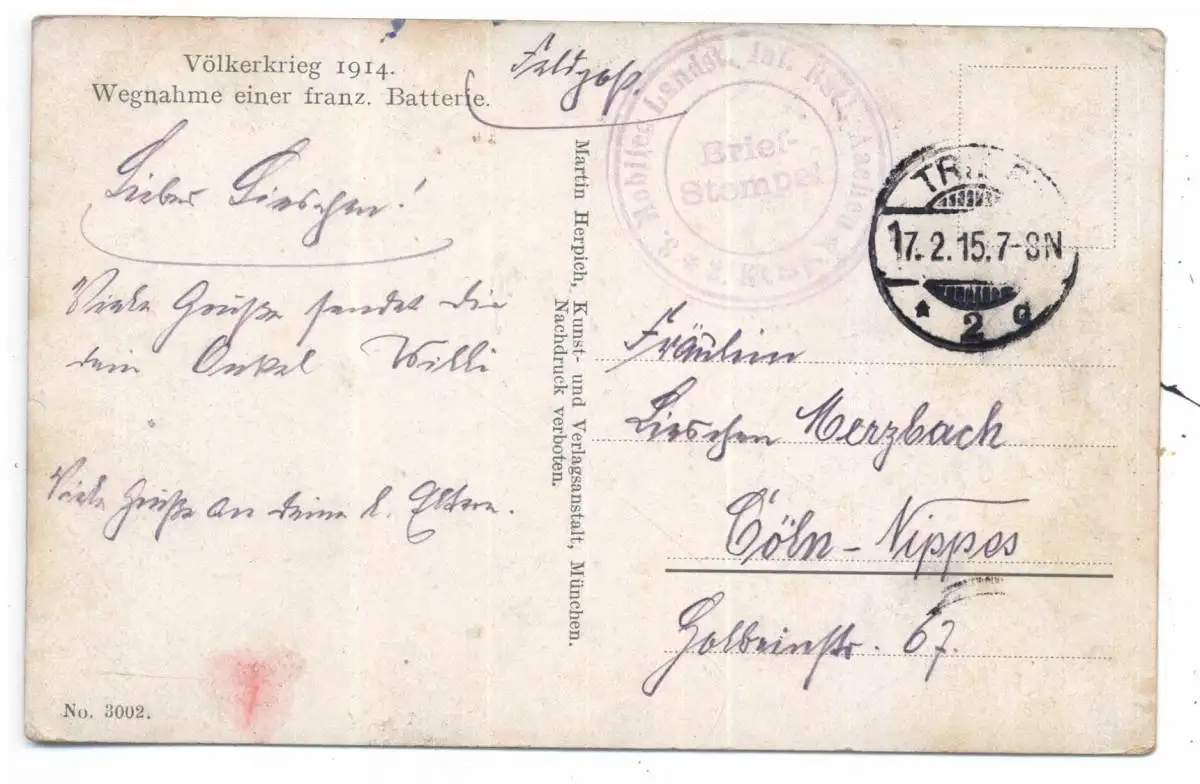 Völkerkrieg 1914.
Wegnahme einer franz. Batterie.
Feldpost.
Liebes Lieschen!
Viele Grüße sendet dir
dein Onkel Willi
Viele Grüße an deine l. Eltern.
No. 3002.
Martin Herpich, Kunst- und Verlagsanstalt, München.
Nachdruck verboten.
3. Mobiles Landst. Inf. Batl. Aachen * 2. Komp. *
Brief-
Stempel
TRIER
17.2.15.7-8N
* 2 g
Fräulein
Lieschen Merzbach
Cöln-Nippes
Holbeinstr. 67.